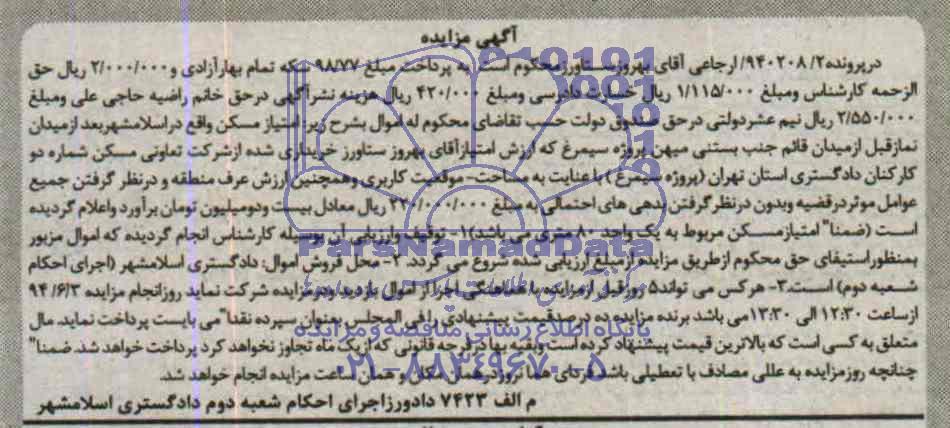 آگهی مزایده
درپرونده۹۴۰۲۰۸/۲/ ارجاعی آقای بهروز ستاورز محکوم است به پرداخت مبلغ ۹۸/۷۷ سکه تمام بهارآزادی و۲/۰۰۰/۰۰۰ ریال حق
الزحمه کارشناس ومبلغ ۱/۱۱۵/۰۰۰ ریال خسارت دادرسی ومبلغ ۴۲۰/۰۰۰ ریال هزینه نشرآگهی درحق خانم راضیه حاجی علی ومبلغ
۲/۵۵۰/۰۰۰ ریال نیم عشردولتی درحق صندوق دولت حسب تقاضای محکوم له اموال بشرح زیر: امتیاز مسکن واقع دراسلامشهربعد ازمیدان
نمازقبل ازمیدان قائم جنب بستنی میهن پروژه سیمرغ که ارزش امتیازآقای بهروز ستاورز خریداری شده ازشرکت تعاونی مسکن شماره دو
کارکنان دادگستری استان تهران (پروژه سیمرغ) با عنایت به مساحت- موقعیت کاربری وهمچنین ارزش عرف منطقه و درنظر گرفتن جمیع
عوامل موثردرقضیه وبدون درنظرگرفتن بدهی های احتمالی به مبلغ ۲۲۰/۰۰۰/۰۰۰ ریال معادل بیست ودومیلیون تومان برآورد واعلام گردیده
است (ضمنا" امتیازمسکن مربوط به یک واحد ۸۰ متری می باشد)۱- توقیف وارزیابی آن بوسیله کارشناس انجام گردیده که اموال مزبور
بمنظوراستیفای حق محکوم ازطریق مزایده ازمبلغ ارزیابی شده شروع می گردد. ۲- محل فروش اموال: دادگستری اسلامشهر (اجرای احکام
شعبه دوم) است.۳- هرکس می تواند۵ روزقبل ازمزایده با هماهنگی اجرا از اموال بازدید ودرمزایده شرکت نماید روزانجام مزایده ۹۴/۶/۳
ازساعت ۱۲:۳۰ الی ۱۳:۳۰ می باشد برنده مزایده ده درصدقیمت پیشنهادی را فی المجلس بعنوان سپرده نقدا"می بایست پرداخت نماید. مال
متعلق به کسی است که بالاترین قیمت پیشنهاد کرده است وبقیه بها درفرجه قانونی که ازیک ماه تجاوز نخواهد کرد پرداخت خواهد شد. ضمنا"
چنانچه روزمزایده به عللی مصادف با تعطیلی باشد فردای همان روزدرهمان مکان و همان ساعت مزایده انجام خواهد شد.
م الف ۷۴۲۳ دادورزاجرای احکام شعبه دوم دادگستری اسلامشهر
ParsNamadData
پایگاه اطلاع رسانی مناقصه و مزایده
۰۲۱-۸۸۳۴۹۶۷۰-۵